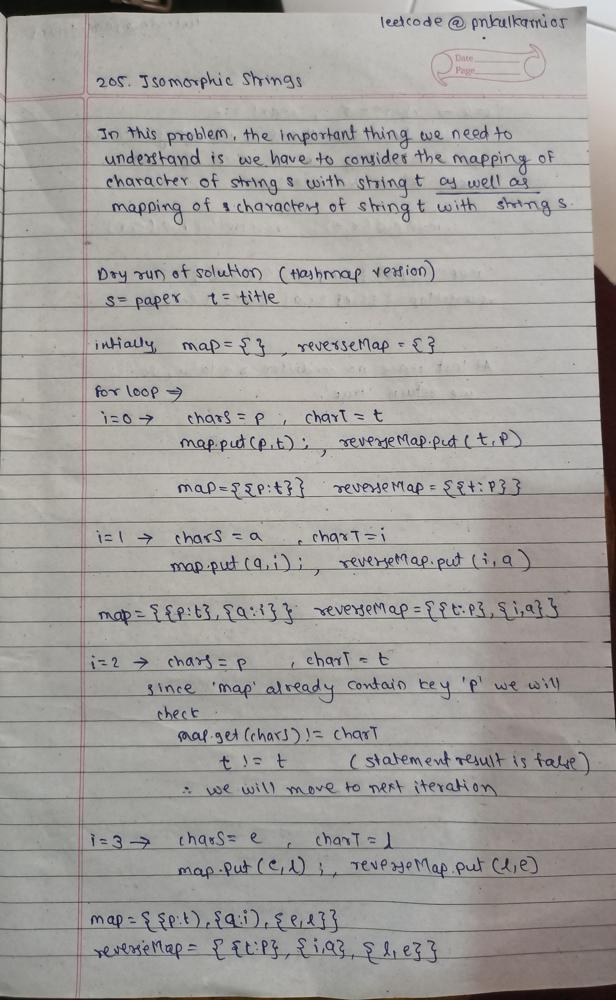 leetcode @ pnkulkarni05
Date
Page
205. Isomorphic Strings
In this problem, the important thing we need to
understand is we have to consider the mapping of
character of string s with string t as well as
mapping of characters of string t with string s.
Dry run of solution (Hashmap version)
s= paper t= title
intially, map = { } , reverseMap = { }
for loop ⇒
i=0 → charS = p , charT = t
map.put(p,t) ; , reverseMap.put(t,p)
map={{p:t}} reverseMap = {{t:p}}
i=1 → charS = a , charT=i
map.put(a,i) ; , reverseMap.put(i,a)
map={{p:t},{a:i}} reverseMap={{t:p},{i,a}}
i=2 → charS= p , charT = t
since 'map' already contain key 'p' we will
check
map.get(charS) != charT
t != t (statement result is false)
∴ we will move to next iteration
i=3 → charS= e , charT= l
map.put(e,l) ; , reverseMap.put(l,e)
map={{p:t),{a:i),{e,l}}
reverseMap = {{t:p},{i,a},{l,e}}